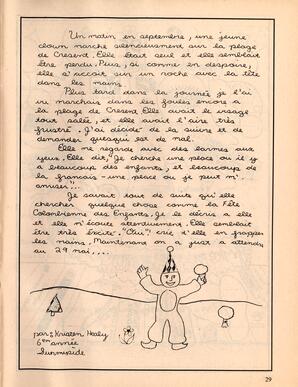 Un matin en septembre, une jeune
clown marche silencieusement sur la plage
de Cresent. Elle était seul et elle semblait
être perdu. Plus, si comme en despoire,
elle s'accoit sur un roche avec la tête
dans les mains.
Plus tard dans la journée je l'ai
vu marchais dans les foules encore sur
la plage de Cresent. Elle avait le visage
tout salée, et elle avait l'aire très
frustré. J'ai décidé de la suivre et de
demander qu'est qui est de mal.
Elle me regarde avec des larmes aux
yeux. Elle dit, "Je cherche une place ou il y
a beaucoup des enfants, et beaucoup de
la français – une place ou je peut m'
amuser"...
Je savait tout de suite qu'elle
chercher quelque choses comme la Fête
Colombienne des Enfants. Je le décris a elle
et elle m'écoute attentivement. Elle semblait
être très éxcité. "Oui", crie t'elle en frappant
les mains. Maintenant on a just a attendre
au 29 mai...
par: Kristen Healy
6ème année
Sunnyside
29